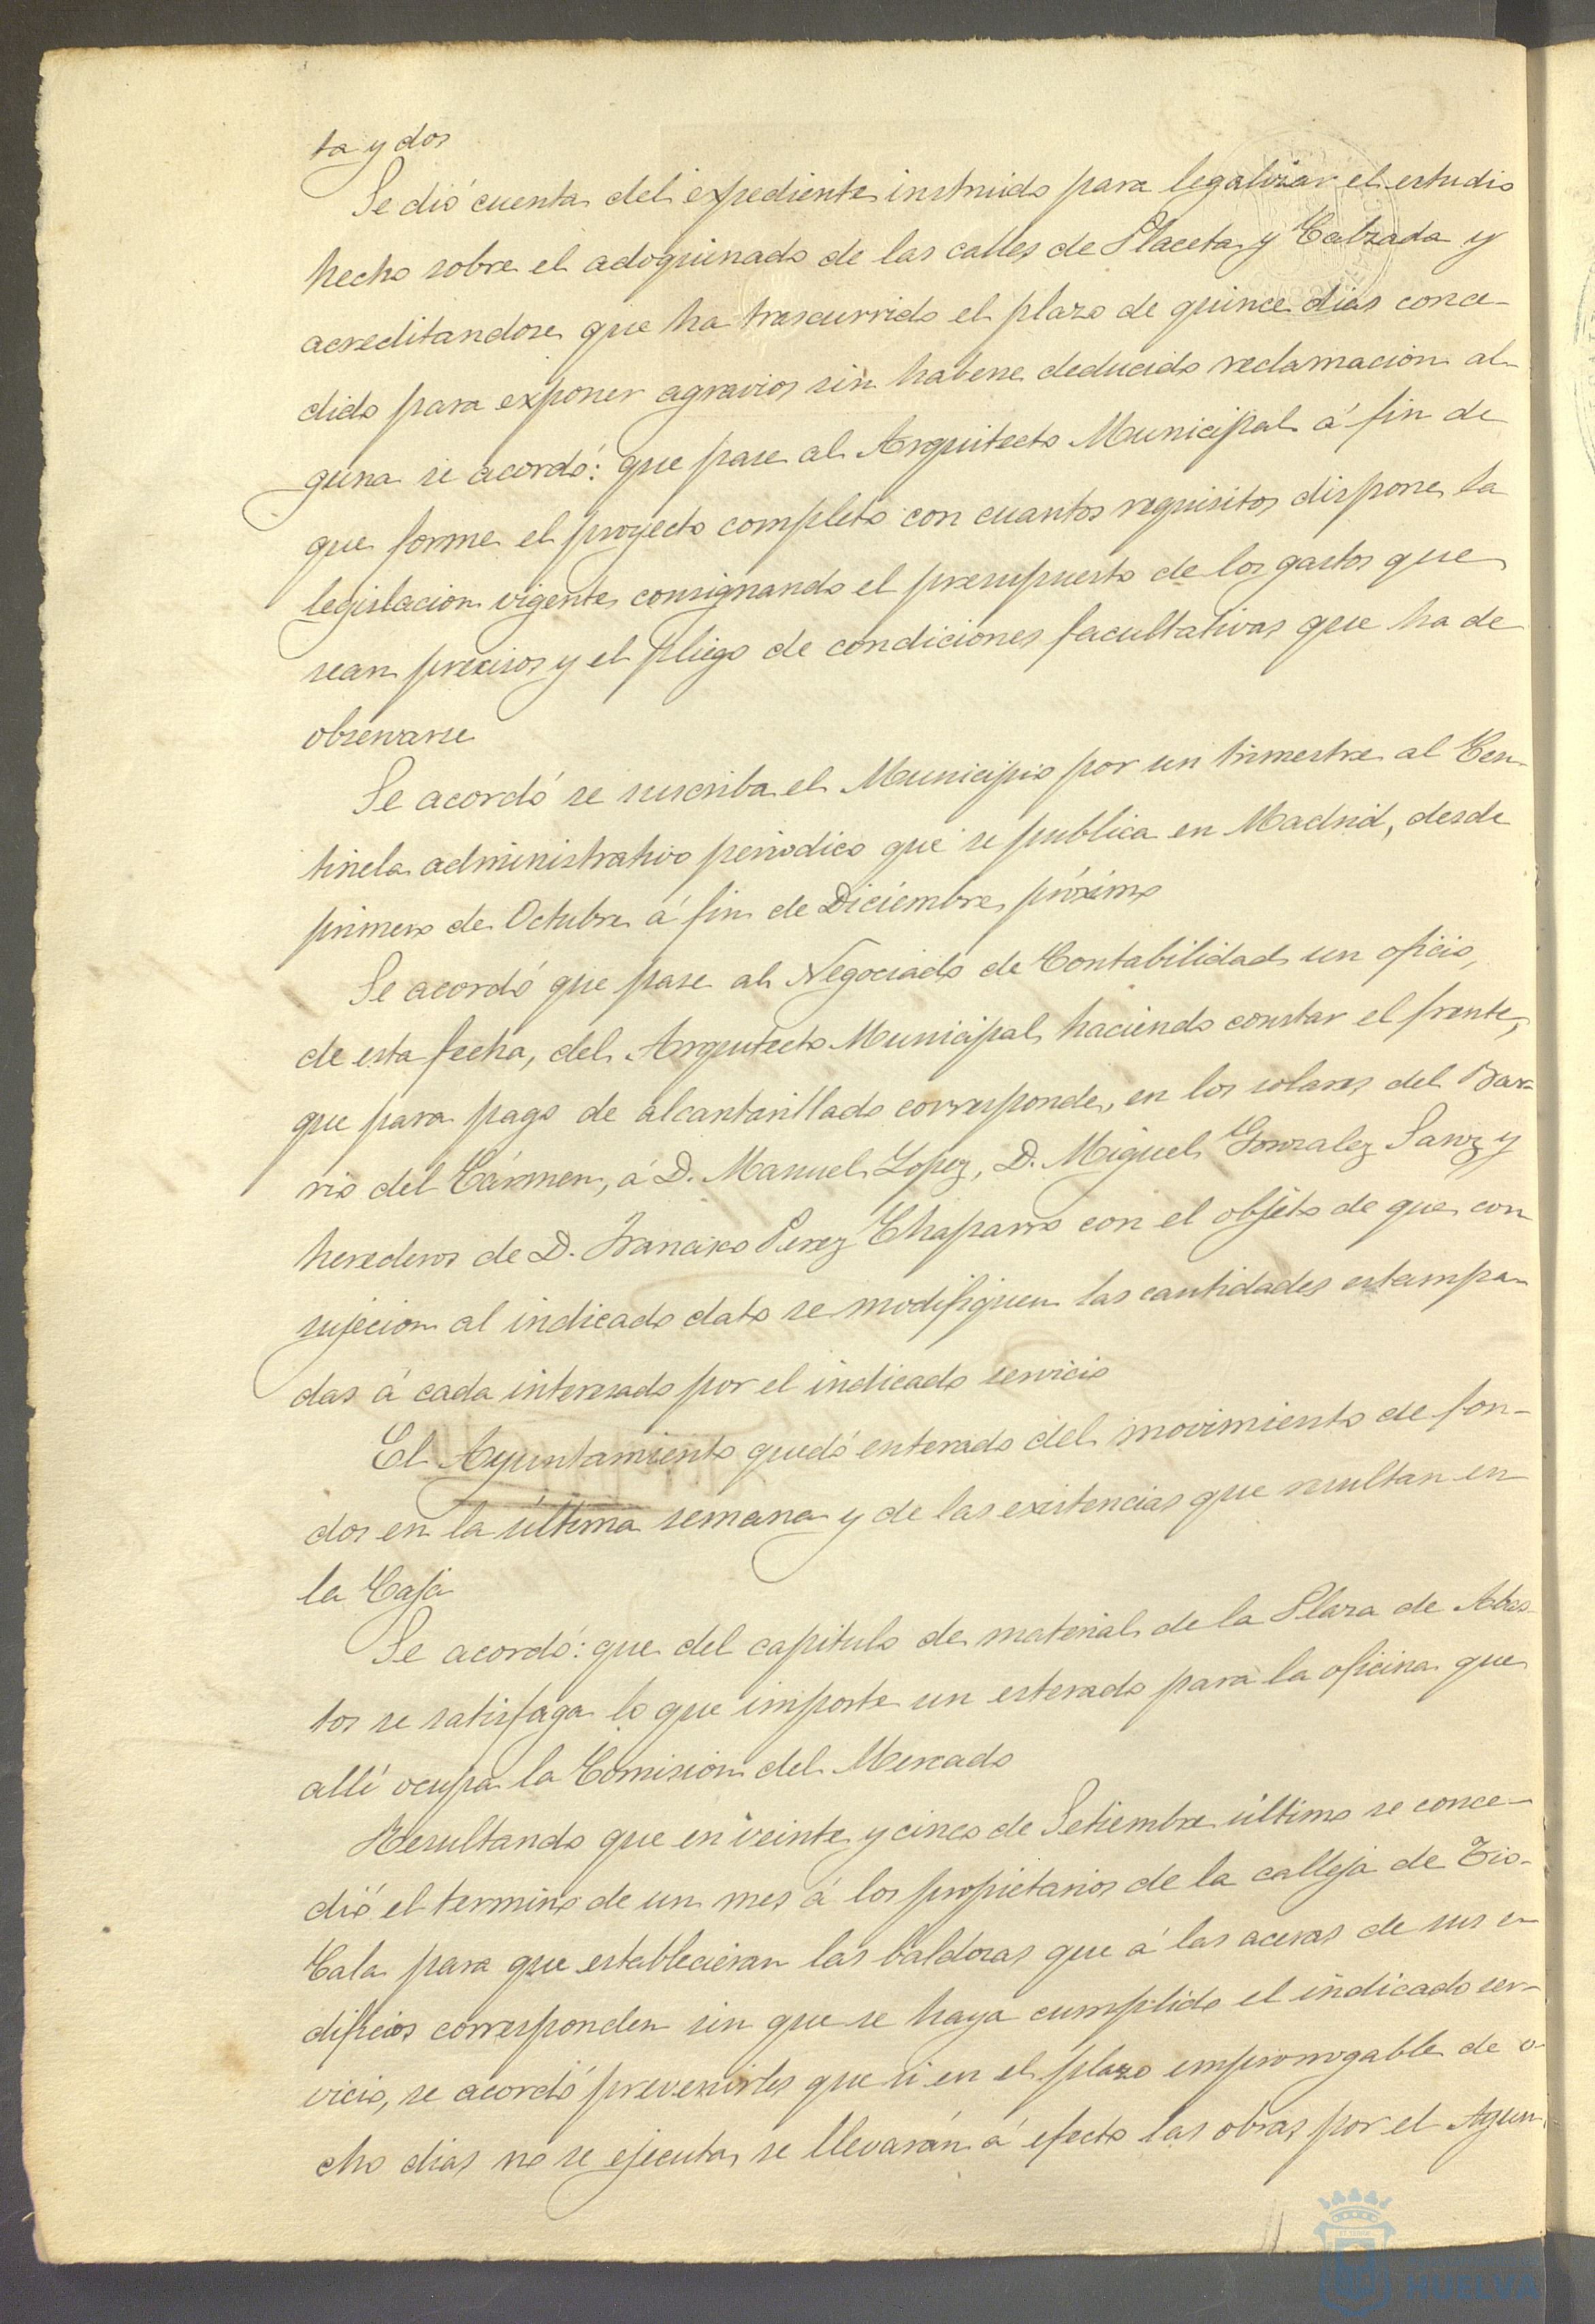 ta y dos
Se dió cuenta del expediente instruido para legalizar el estudio
hecho sobre el adoquinado de las calles de Placeta y Calzada y
acreditandose que ha trascurrido el plazo de quince dias conce-
dido para exponer agravios sin haberse deducido reclamacion al-
guna se acordó: que pase al Arquitecto Municipal á fin de
que forme el proyecto completo con cuantos requisitos dispone la
legislacion vigente consignando el presupuesto de los gastos que
sean precisos y el pliego de condiciones facultativas que ha de
observarse
Se acordó se suscriba el Municipio por un trimestre al Cen-
tinela administrativo periodico que se publica en Madrid, desde
primero de Octubre á fin de Diciembre próximo
Se acordó que pase al Negociado de Contabilidad un oficio,
de esta fecha, del Arquitecto Municipal haciendo constar el frente,
que para pago de alcantarillado corresponde, en los solares del Bar-
rio del Cármen, á D. Manuel Lopez, D. Miguel Gonzalez Sanz y
herederos de D. Francisco Perez Chaparro con el objeto de que con
sujecion al indicado dato se modifiquen las cantidades estampa-
das á cada interesado por el indicado servicio
El Ayuntamiento quedó enterado del movimiento de fon-
dos en la última semana y de las existencias que resultan en
la Caja
Se acordó: que del capitulo de material de la Plaza de Abas-
tos se satisfaga lo que importe un esterado para la oficina que
allí ocupa la Comision del Mercado
Resultando que en veinte y cinco de Setiembre último se conce-
dió el termino de un mes á los propietarios de la calleja de Tio-
Cala para que establecieran las baldosas que á las aceras de sus e-
dificios corresponden sin que se haya cumplido el indicado ser-
vicio, se acordó prevenirles que si en el plazo improrrogable de o-
cho dias no se ejecuta, se llevarán á efecto las obras por el Ayun-
HUELVA